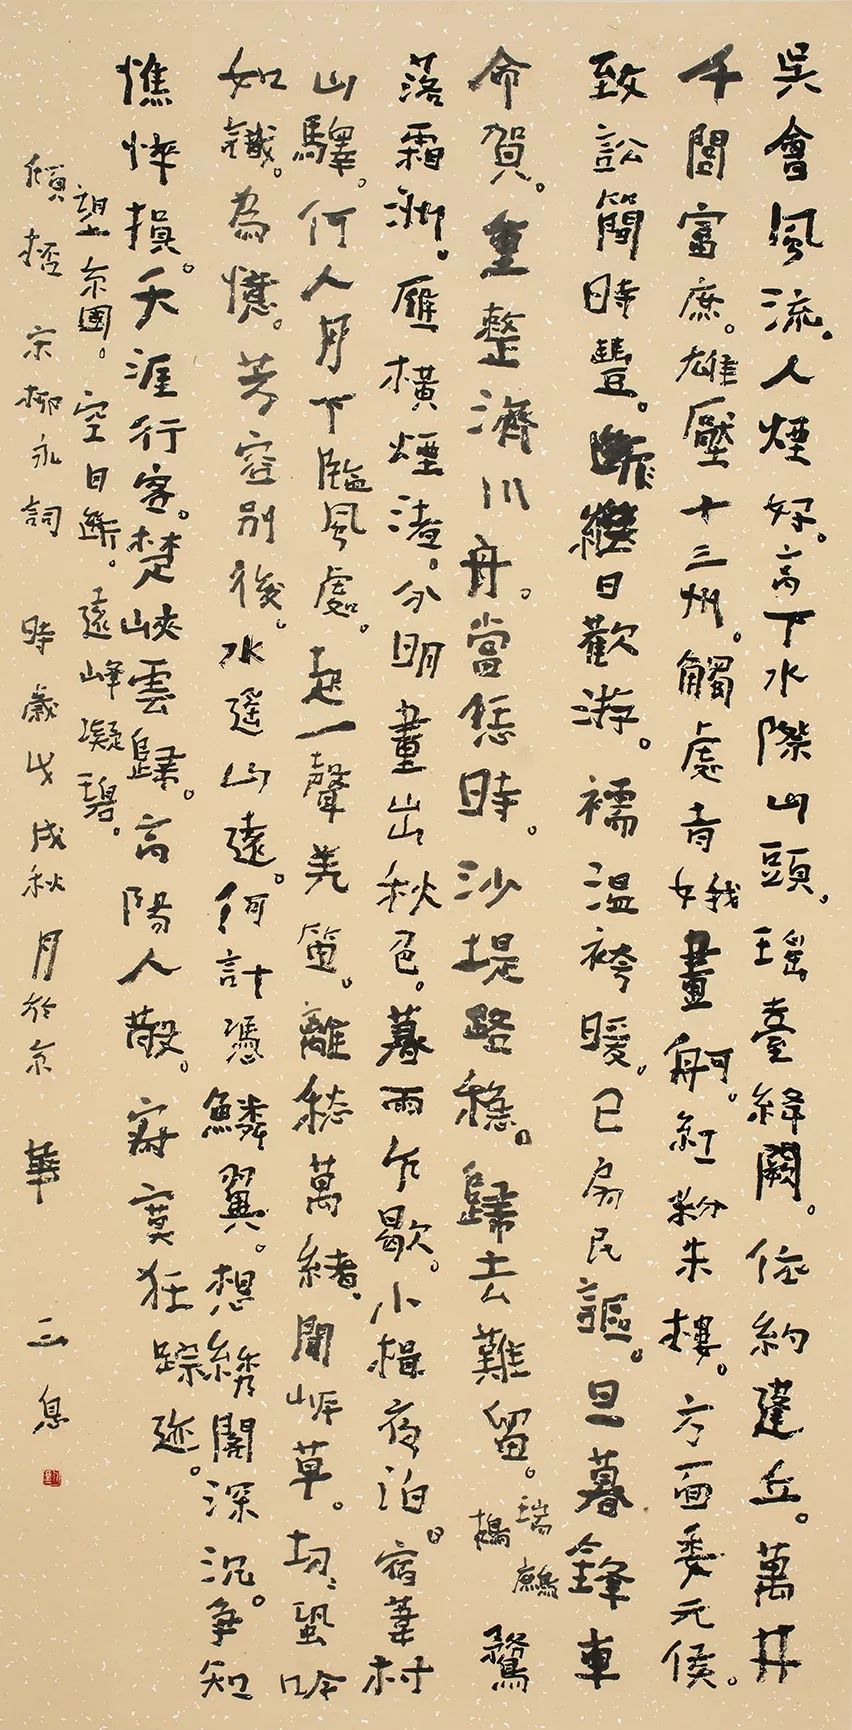 吳會風流。人煙好。高下水際山頭。瑤臺絳闕。依約蓬丘。萬井
千閭富庶。雄壓十三州。觸處青娥畫舸。紅粉朱樓。方面委元侯。
致訟簡時豐。繼日歡游。襦溫袴暖。已扇民謳。旦暮鋒車
命賀。重整濟川舟。當恁時。沙堤路穩。歸去難留。瑞鷓鴣 鶩
落霜洲。雁橫煙渚。分明畫出秋色。暮雨乍歇。小楫夜泊。宿葦村
山驛。何人月下臨風處。起一聲羌笛。離愁萬緒。聞岸草。切切蛩吟
如織。為憶。芳容別後。水遙山遠。何計憑鱗翼。想繡閣深沉。爭知
憔悴損。天涯行客。楚峽雲歸。高陽人散。寂寞狂踪迹。
望京國。空目斷。遠峰凝碧。
傾杯 宋柳永詞 時歲戊戌秋月於京華